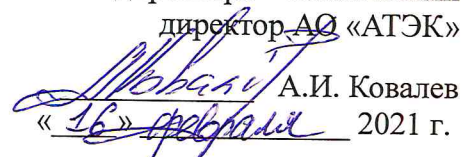 директор АО «АТЭК»
А.И. Ковалев
«16» февраля 2021 г.